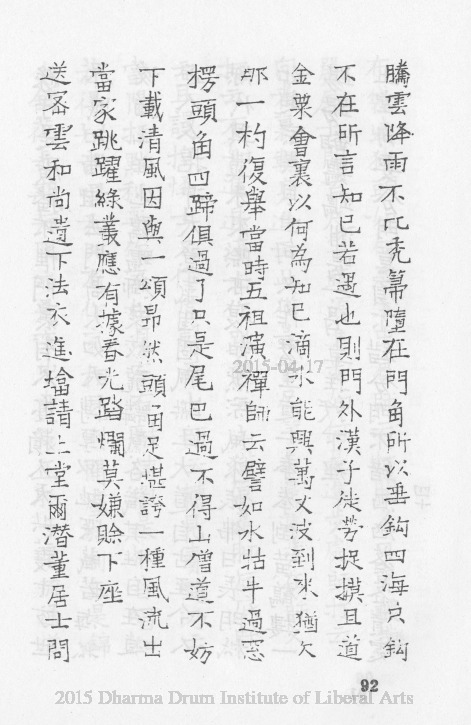 騰雲降雨不比禿帚墮在門角所以垂鈎四海只鈎
不在所言知已若遇也則門外漢子徒勞捉摸且道
金粟會裏以何為知已滴水能興萬丈波到來猶欠
那一杓復舉當時五祖演禪師云譬如水牯牛過窓
楞頭角四蹄俱過了只是尾巴過不得山僧道不妨
下載清風因與一頌昻然頭角足堪誇一種風流出
當家跳躍綠叢應有據春光踏爛莫嫌賒下座
送密雲和尚遺下法衣進墖請上堂爾潛董居士問
2015-04-17
92
2015 Dharma Drum Institute of Liberal Arts